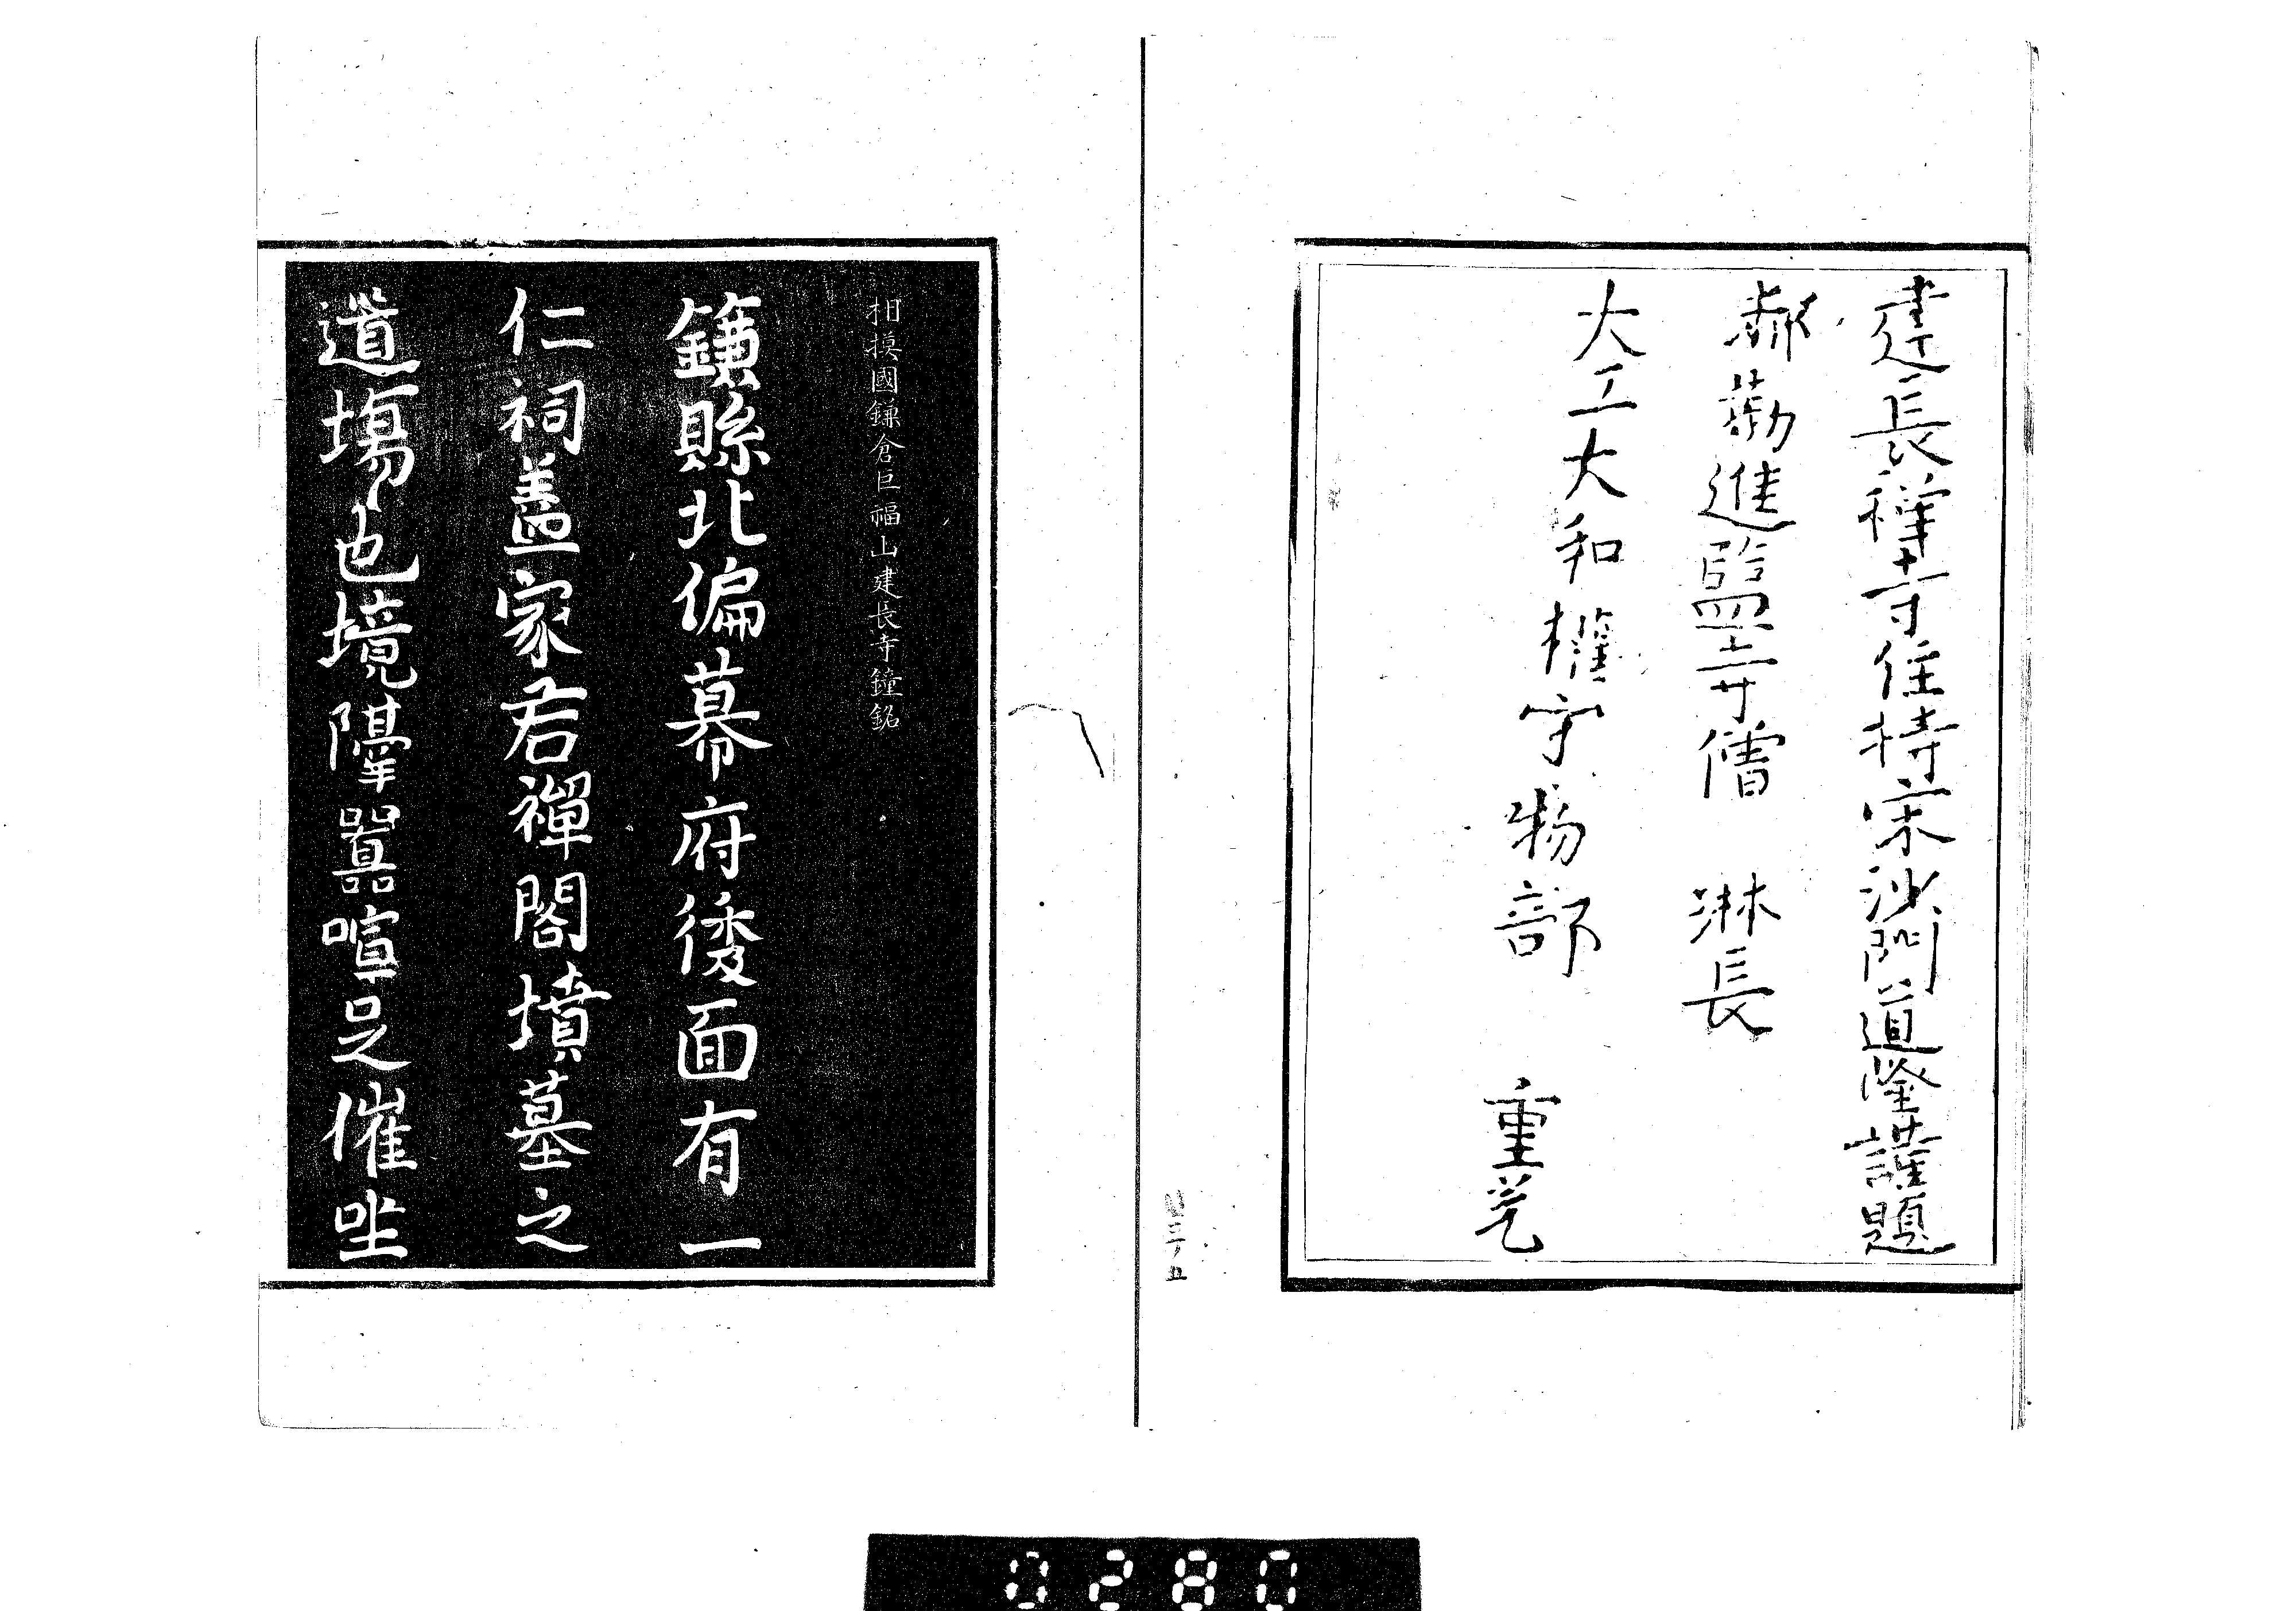 建長禪寺住持宋沙門道隆謹題
都勸進監寺僧 琳長
大工大和權守物部 重光
相模國鎌倉巨福山建長寺鐘銘
鎌縣北偏幕府後面有一
仁祠盖家君禪閤墳墓之
道場也境隔囂喧足催坐
0280